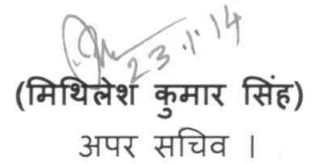 23.1.14
(मिथिलेश कुमार सिंह)
अपर सचिव ।